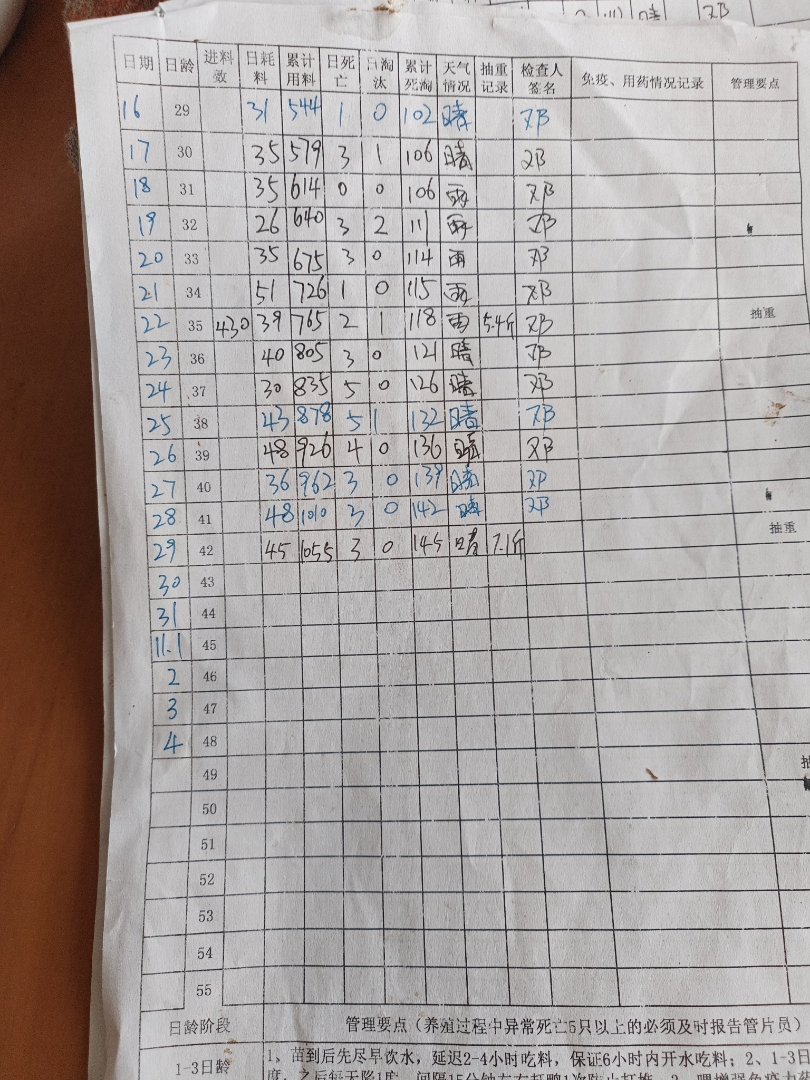 晴 邓
日期 日龄 进料数 日耗料 累计用料 日死亡 日淘汰 累计死淘 天气情况 抽重记录 检查人签名 免疫、用药情况记录 管理要点
16 29 31 544 1 0 102 晴 邓
17 30 35 579 3 1 106 晴 邓
18 31 35 614 0 0 106 雨 邓
19 32 26 640 3 2 111 雨 邓
20 33 35 675 3 0 114 雨 邓
21 34 51 726 1 0 115 雨 邓
22 35 430 39 765 2 1 118 雨 5.4斤 邓 抽重
23 36 40 805 3 0 121 晴 邓
24 37 30 835 5 0 126 晴 邓
25 38 43 878 5 1 132 晴 邓
26 39 48 926 4 0 136 晴 邓
27 40 36 962 3 0 139 晴 邓
28 41 48 1010 3 0 142 晴 邓
29 42 45 1055 3 0 145 晴 7.1斤 抽重
30 43
31 44
11.1 45
2 46
3 47
4 48
49
50
51
52
53
54
55
日龄阶段 管理要点（养殖过程中异常死亡5只以上的必须及时报告管片员）
1-3日龄 1、苗到后先尽早饮水，延迟2-4小时吃料，保证6小时内开水吃料；2、1-3日